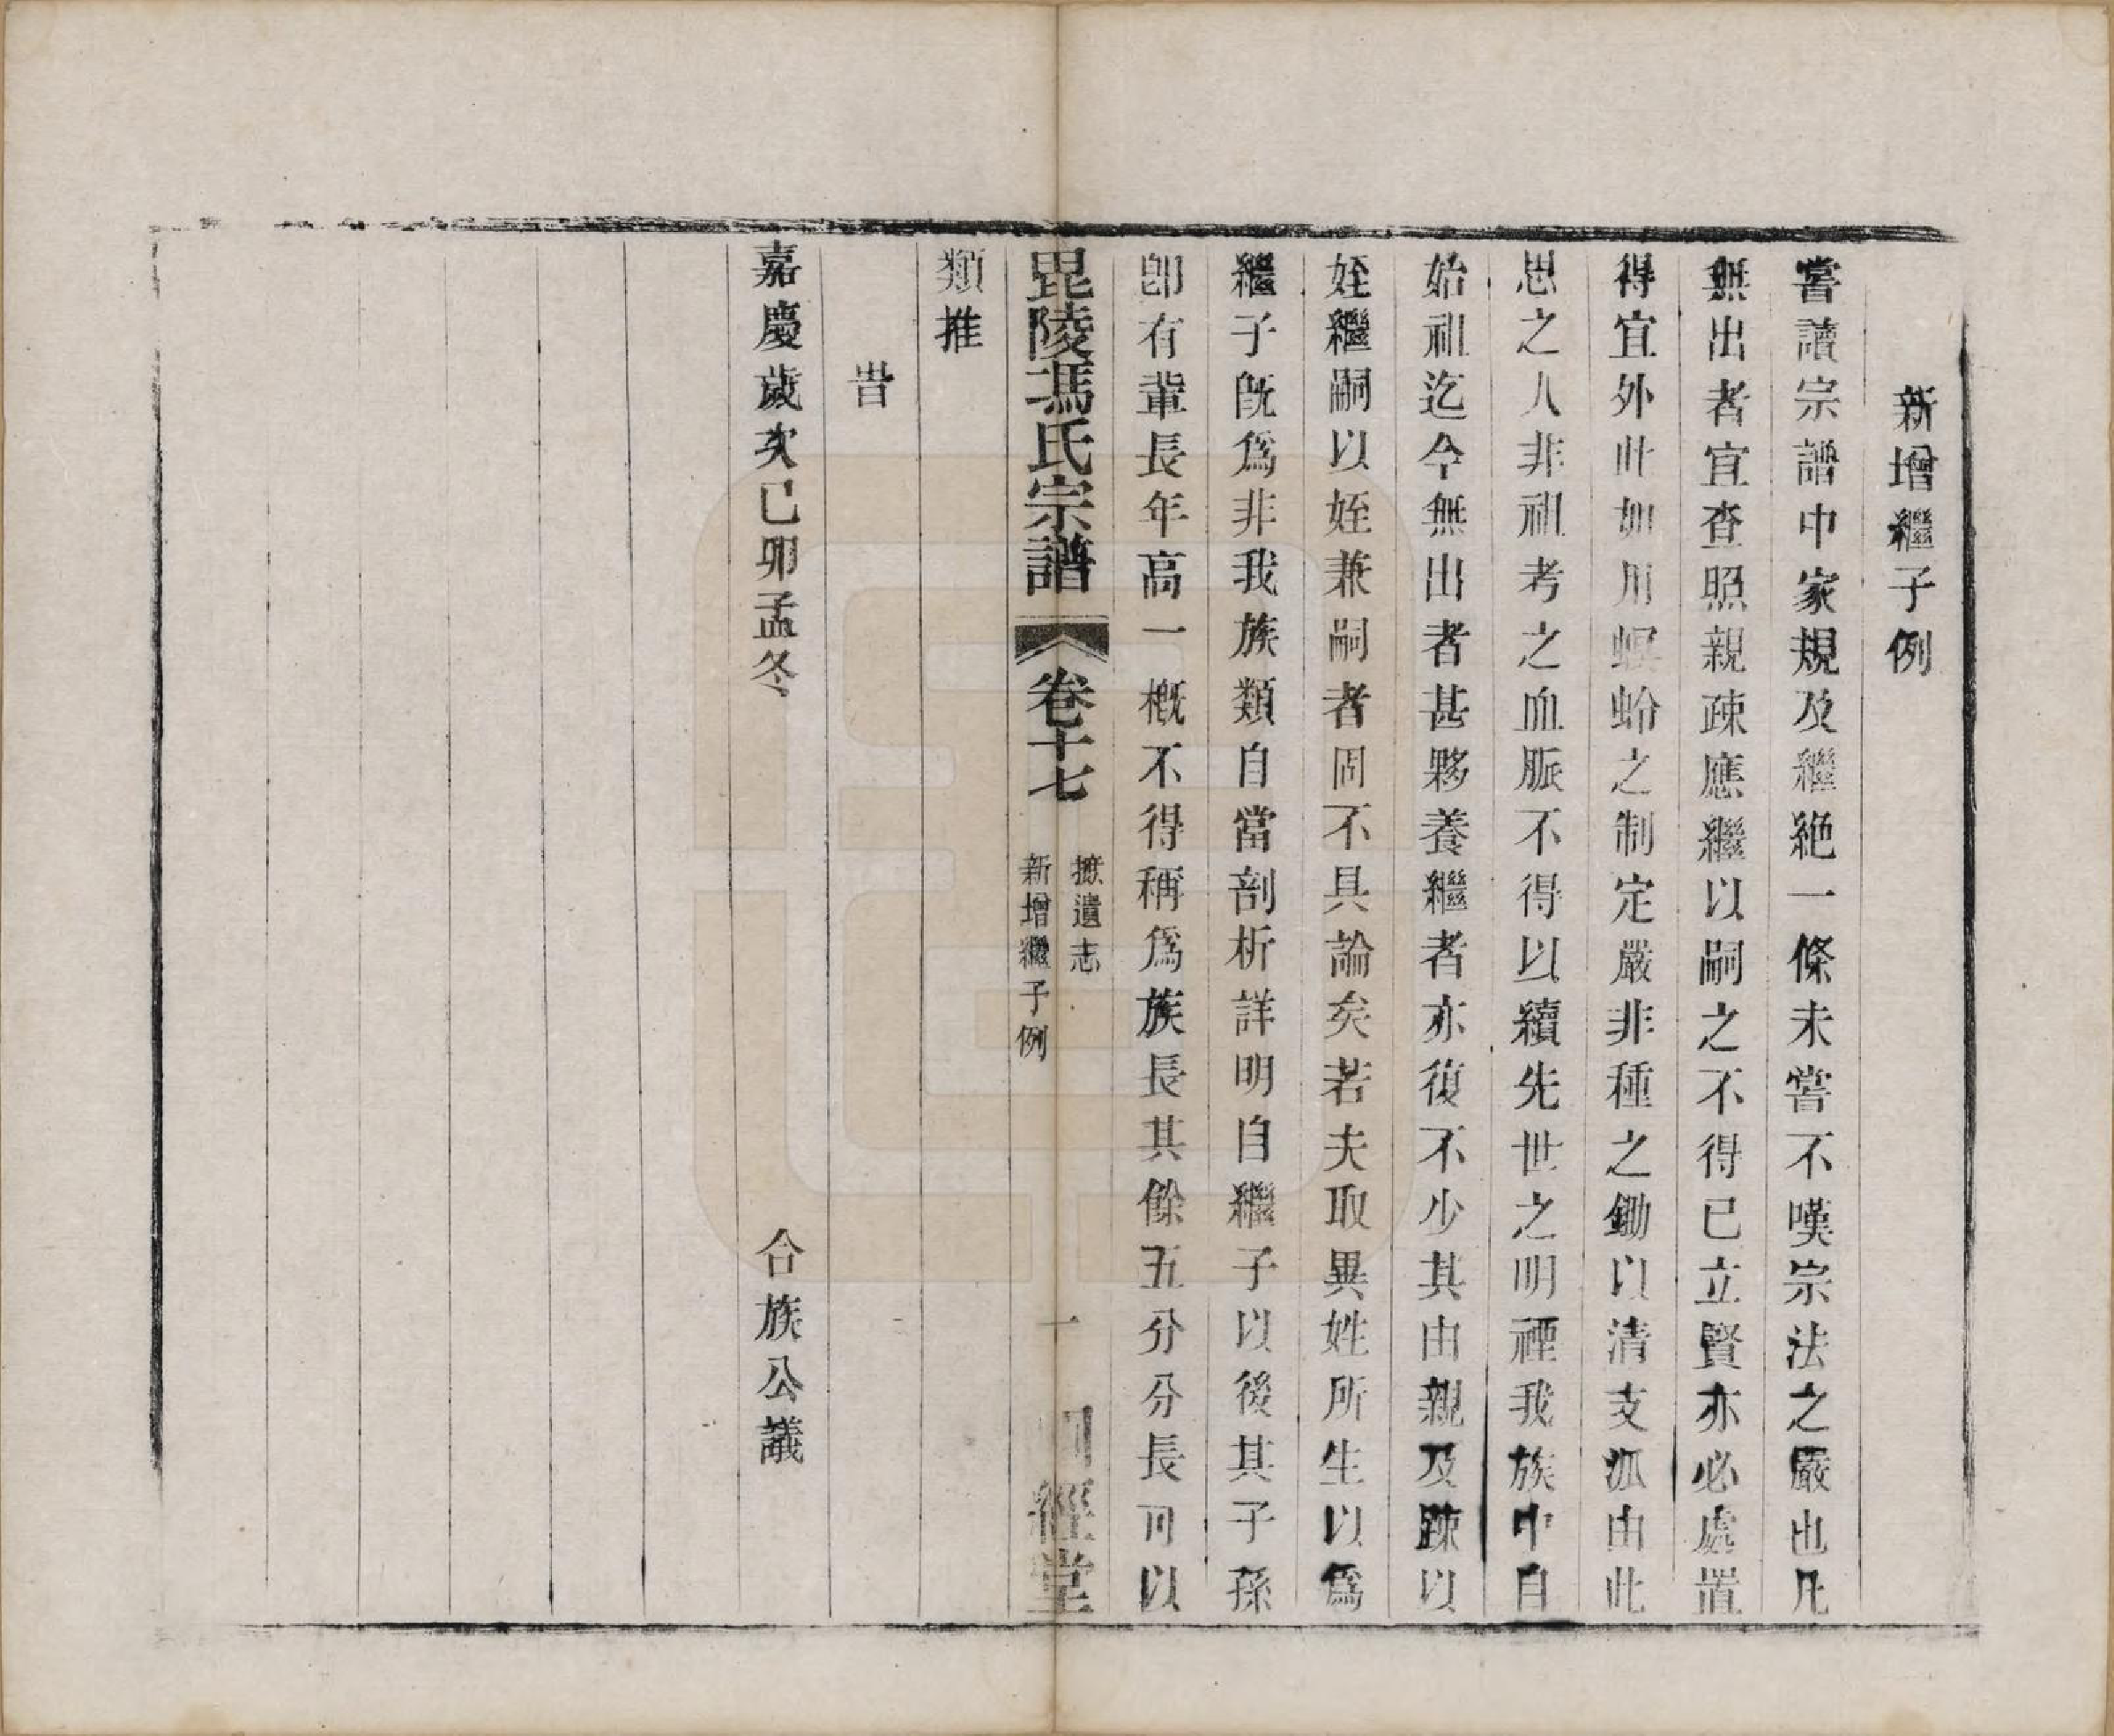 新增繼子例
嘗讀宗譜中家規及繼絶一條未嘗不嘆宗法之嚴也凡
無出者宜查照親疎應繼以嗣之不得已立賢亦必處置
得宜外此如用螟蛉之制定嚴非種之鋤以清支派由此
思之人非祖考之血脈不得以續先世之明禋我族中自
始祖迄今無出者甚夥養繼者亦復不少其由親及疎以
姪繼嗣以姪兼嗣者固不具論矣若夫取異姓所生以爲
繼子旣爲非我族類自當剖析詳明自繼子以後其子孫
卽有輩長年高一槪不得稱爲族長其餘五分分長可以
毘陵馮氏宗譜 卷十七 摭遺志 新增繼子例 一 經堂
類推
旹
嘉慶歲次己卯孟冬 合族公議